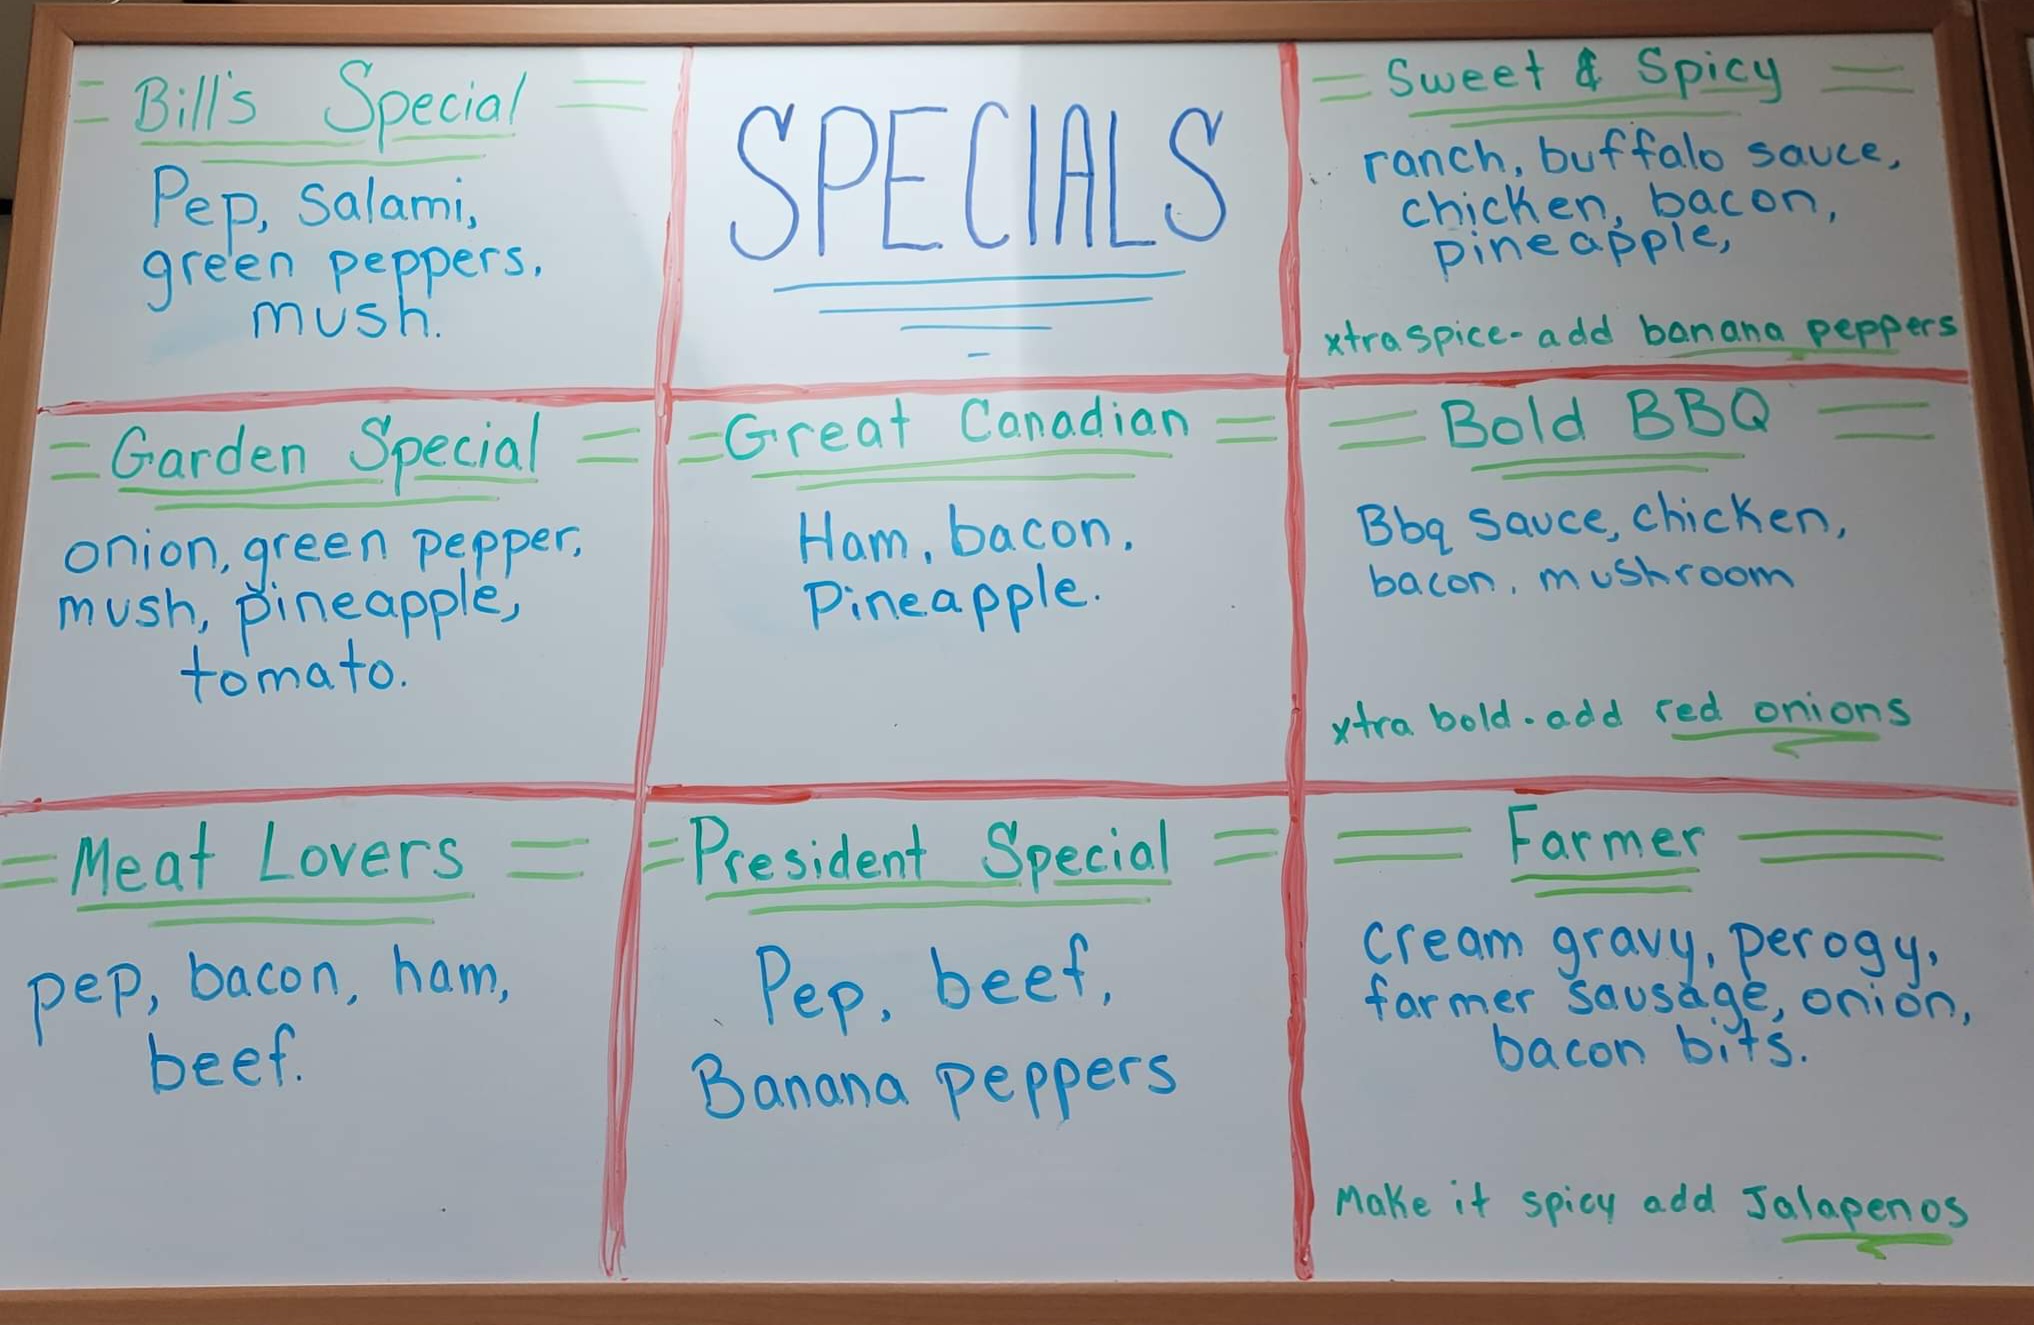 Bill's Special
Pep, Salami,
green peppers,
mush.
SPECIALS
Sweet & Spicy
ranch, buffalo sauce,
chicken, bacon,
pineapple,
xtra spice- add banana peppers
Garden Special
onion, green pepper,
mush, pineapple,
tomato.
Great Canadian
Ham, bacon,
Pineapple.
Bold BBQ
Bbq Sauce, chicken,
bacon, mushroom
xtra bold - add red onions
Meat Lovers
pep, bacon, ham,
beef.
President Special
Pep, beef,
Banana peppers
Farmer
cream gravy, perogy,
farmer sausage, onion,
bacon bits.
Make it spicy add Jalapenos